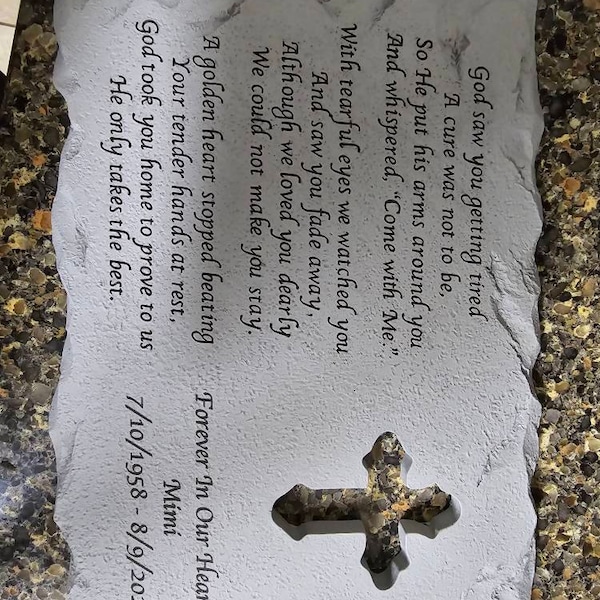 God saw you getting tired
A cure was not to be,
So He put his arms around you
And whispered, "Come with Me."
With tearful eyes we watched you
And saw you fade away,
Although we loved you dearly
We could not make you stay.
A golden heart stopped beating
Your tender hands at rest,
God took you home to prove to us
He only takes the best.
Forever In Our
Mimi
7/10/1958 - 8/9/